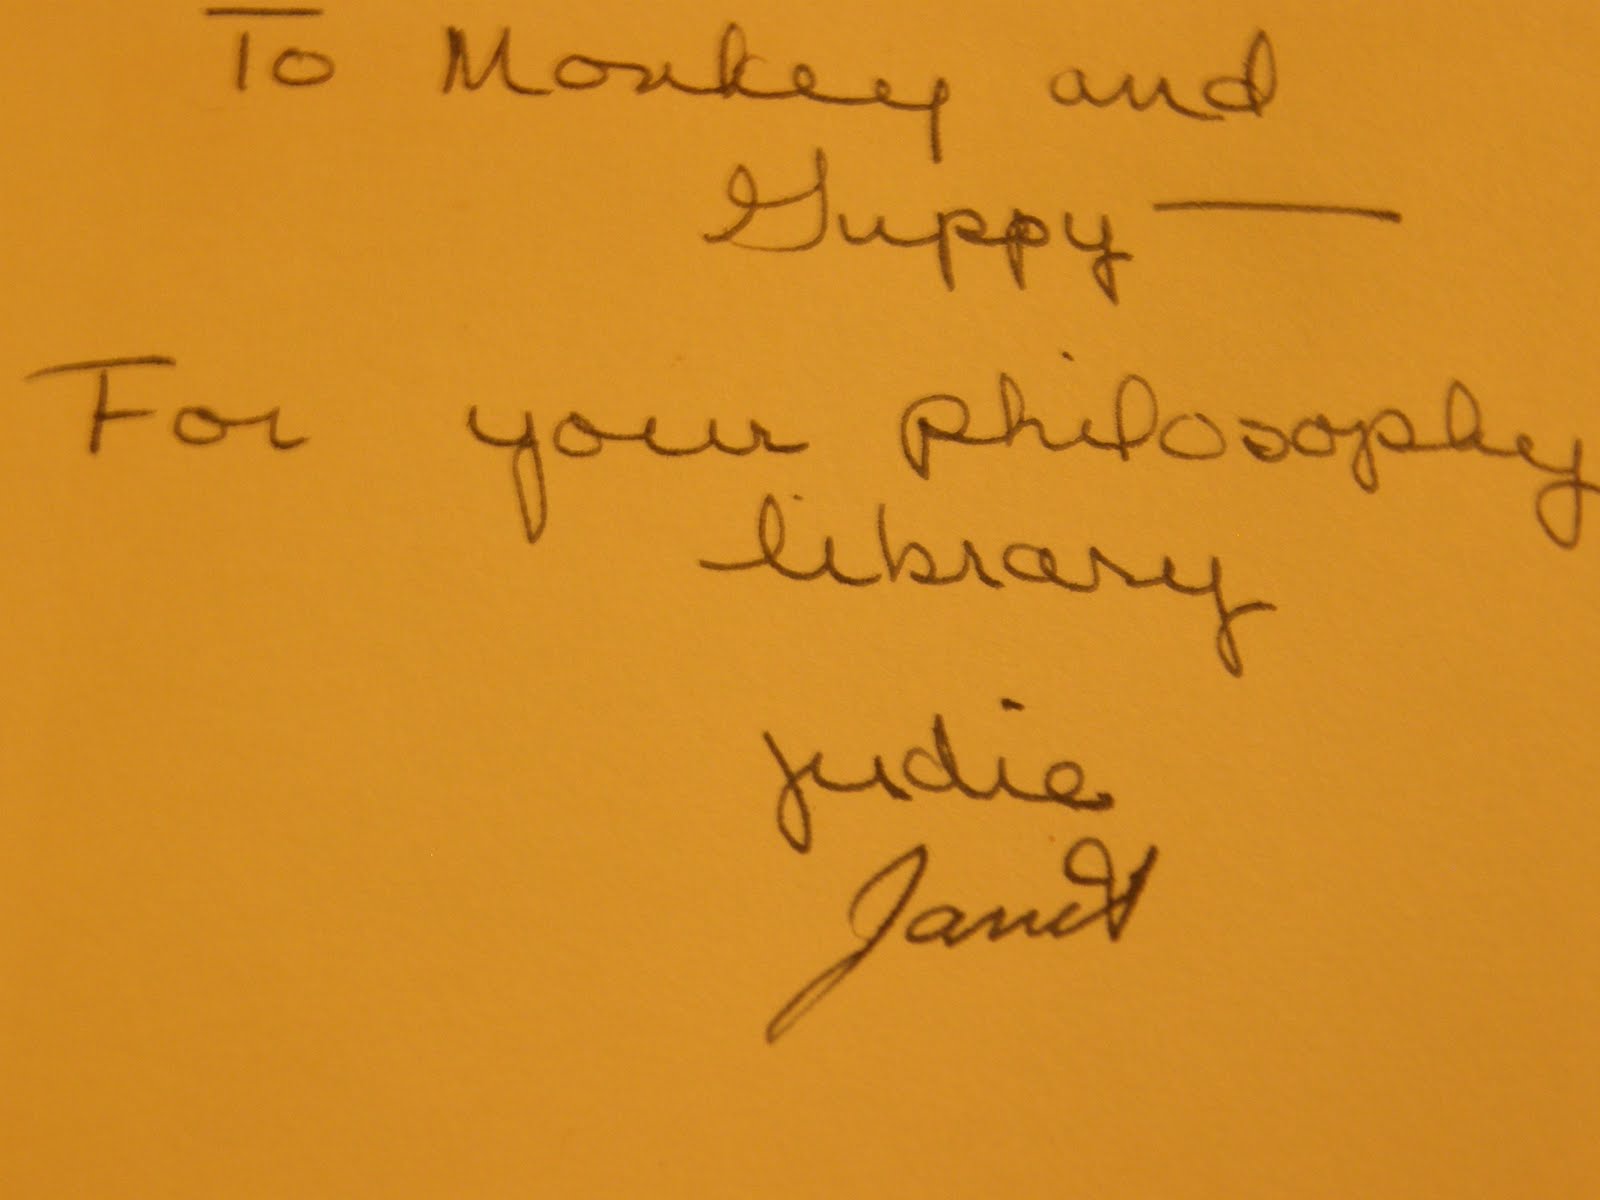 To Monkey and
Guppy —
For your philosophy
library
Judie
Janet